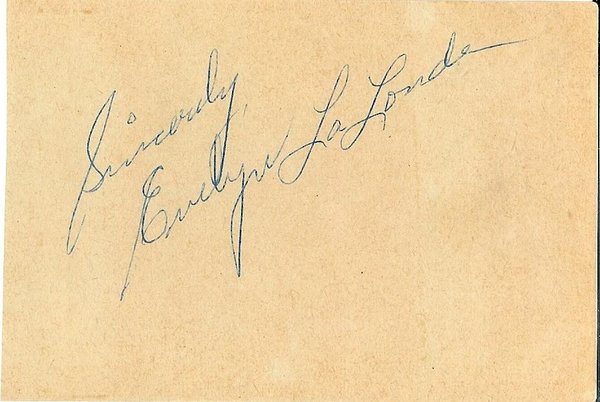 Sincerely,
Evelyn La Londe